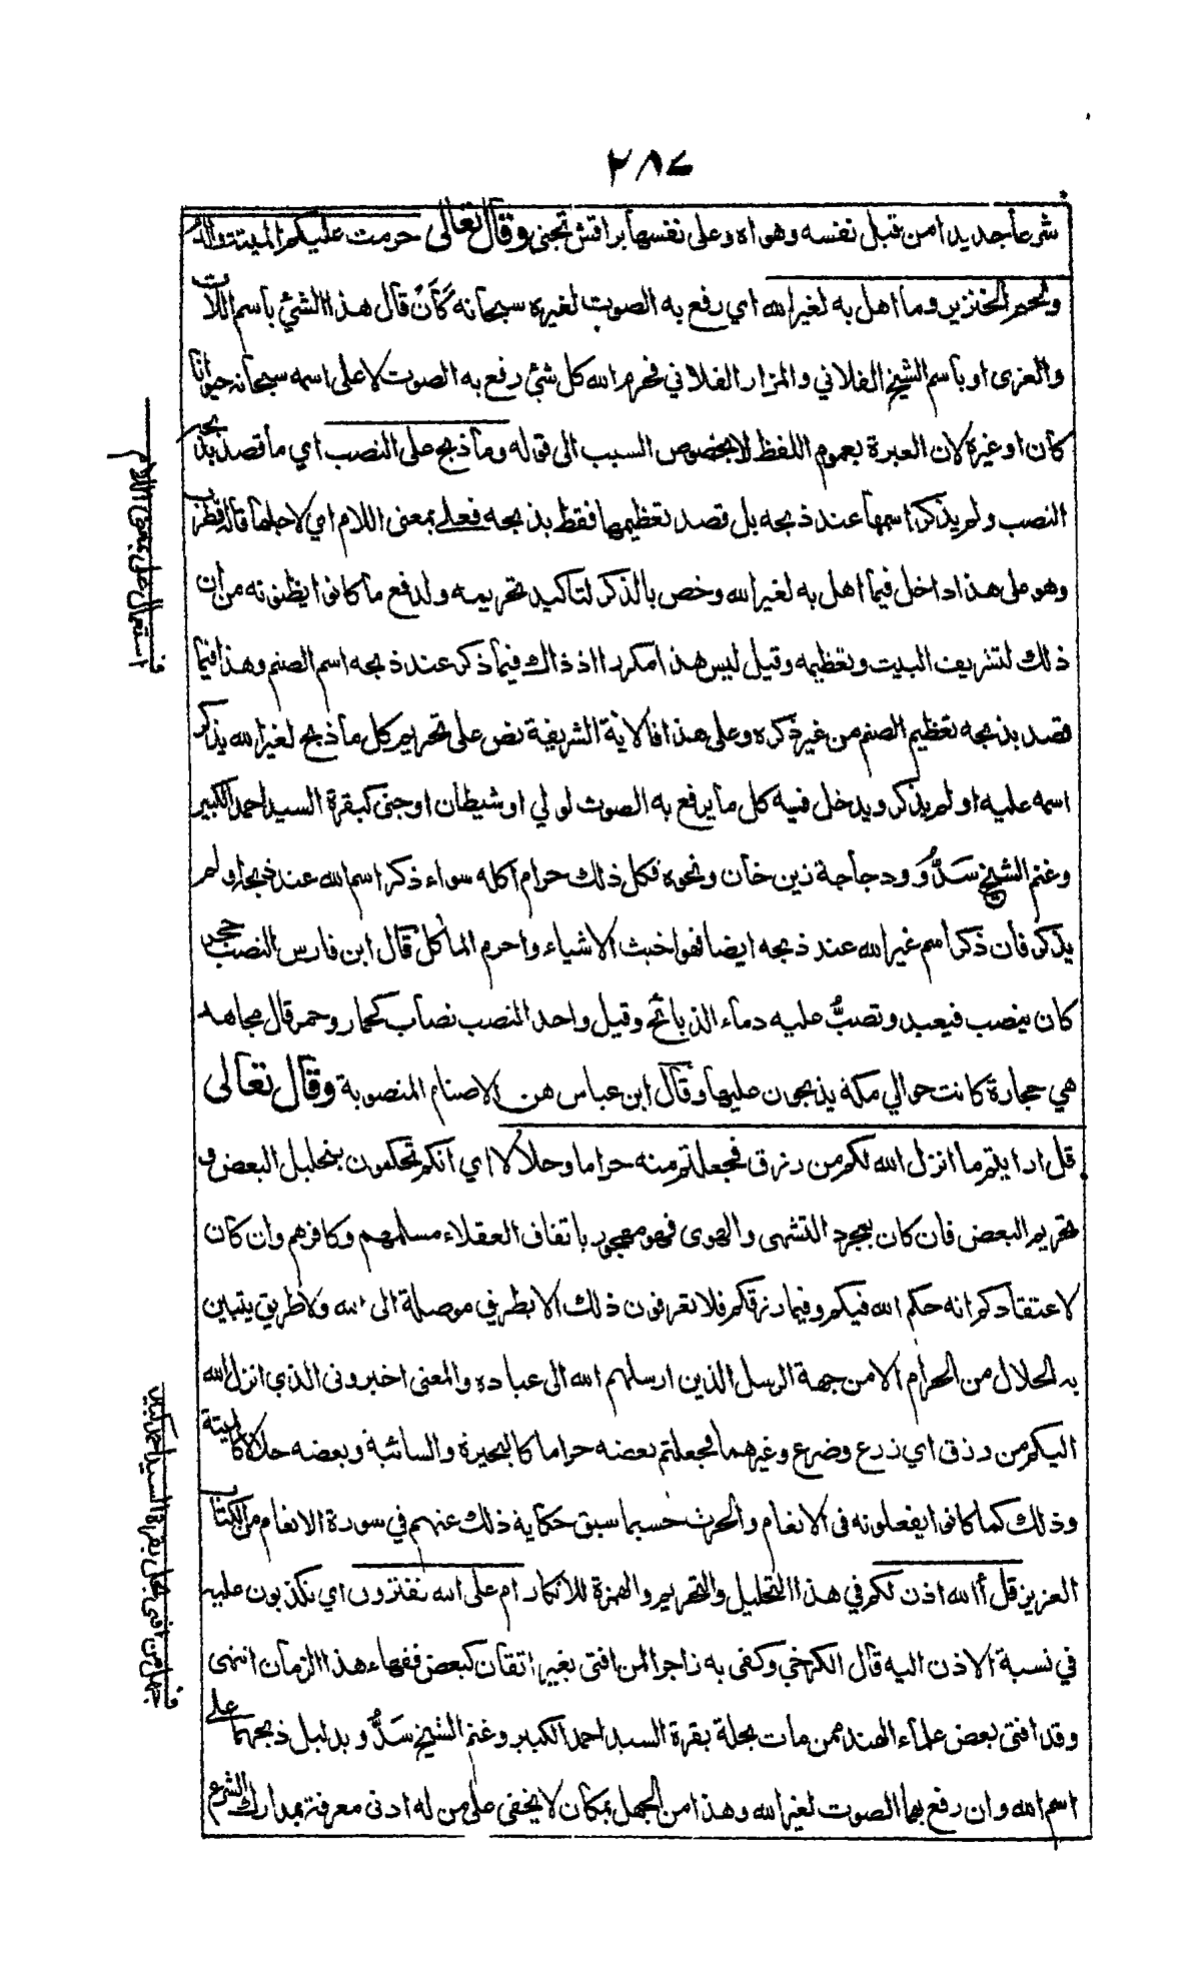 ٢٨٧
شرعا جديدا من قبل نفسه وهواه وعلى نفسها براقش تجنى وقال تعالى حرمت عليكم الميتة والدم
ولحم الخنزير وما اهل به لغير الله اي رفع به الصوت لغيره سبحانه كَأَنْ قال هذا الشئ باسم اللات
والعزى او باسم الشيخ الفلاني والمزار الفلاني فحرم الله كل شئ رفع به الصوت لا على اسمه سبحانه حيوانا
كان او غيره لان العبرة بعموم اللفظ لا بخصوص السبب الى قوله وما ذبح على النصب اي ما قصد بذبحه
النصب ولم يذكر اسمها عند ذبحه بل قصد تعظيمها فقط بذبحه فعلى بمعنى اللام اي لاجلها قاله قطرب
وهو على هذا داخل فيما اهل به لغير الله وخص بالذكر لتاكيد تحريمه ولدفع ما كانوا يظنونه من ان
ذلك لتشريف البيت وتعظيمه وقيل ليس هذا مكررا اذ ذاك فيما ذكر عند ذبحه اسم الصنم وهذا فيما
قصد بذبحه تعظيم الصنم من غير ذكره وعلى هذا فالاية الشريفة نص على تحريم كل ما ذبح لغير الله يذكر
اسمه عليه او لم يذكر ويدخل فيه كل ما يرفع به الصوت لولي او شيطان او جنى كبقرة السيد احمد الكبير
وغنم الشيخ سَدُّو ودجاجة زين خان ونحوه فكل ذلك حرام اكله سواء ذكر اسم الله عند ذبحها او لم
يذكر فان ذكر اسم غير الله عند ذبحه ايضا فهو اخبث الاشياء واحرم المأكل قال ابن فارس النصب حجر
كان ينصب فيعبد وتصبُّ عليه دماء الذبائح وقيل واحد النصب نصاب كحمار وحمر قال مجاهد
هي حجارة كانت حوالي مكة يذبحون عليها وقال ابن عباس هن الاصنام المنصوبة وقال تعالى
قل ارايتم ما انزل الله لكم من رزق فجعلتم منه حراما وحلالا اي انكم تحكمون بتحليل البعض و
تحريم البعض فان كان بمجرد التشهى والهوى فهو مهجور باتفاق العقلاء مسلمهم وكافرهم وان كان
لاعتقادكم انه حكم الله فيكم وفيما رزقكم فلا تعرفون ذلك الا بطريق موصلة الى الله ولا طريق يتبين
به الحلال من الحرام الا من جهة الرسل الذين ارسلهم الله الى عباده والمعنى اخبروني الذي انزل الله
اليكم من رزق اي زرع وضرع وغيرهما فجعلتم بعضه حراما كالبحيرة والسائبة وبعضه حلالا كالميتة
وذلك كما كانوا يفعلونه في الانعام والحرث حسبما سبق حكاية ذلك عنهم في سورة الانعام من الكتاب
العزيز قل أالله اذن لكم في هذا التحليل والتحريم والهمزة للانكار ام على الله تفترون اي تكذبون عليه
في نسبة الاذن اليه قال الكرخي وكفى به زاجرا لمن افتى بغير اتقان كبعض فقهاء هذا الزمان انتهى
وقد افتى بعض علماء الهند ممن مات بحلة بقرة السيد احمد الكبير وغنم الشيخ سَدُّو بدليل ذبحهما على
اسم الله وان رفع بها الصوت لغير الله وهذا من الجهل بمكان لا يخفى على من له ادنى معرفة بمدارك الشرع
ف
استعمال على بمعنى اللام
ف
جهل من افتى بحل بقرة السيد احمد الكبير